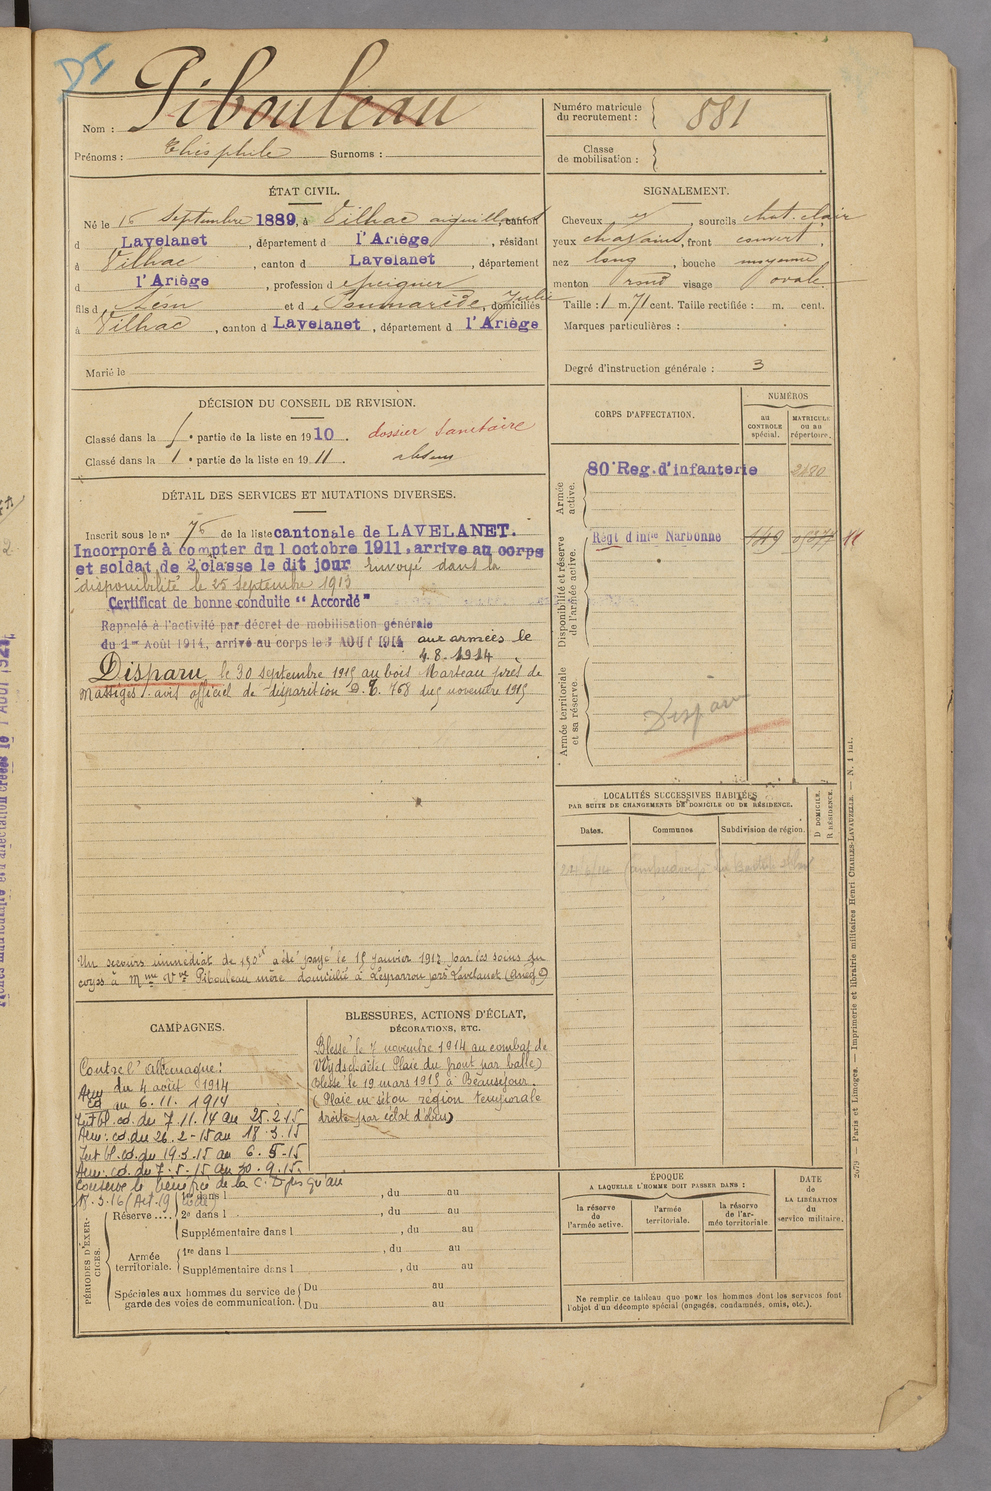 DI
Nom : Pibouleau
Prénoms : Théophile Surnoms :
Numéro matricule du recrutement : 881
Classe de mobilisation :
ÉTAT CIVIL.
Né le 16 Septembre 1889, à Vilhac aiguillanes, canton
d Lavelanet, département d l'Ariège, résidant
à Vilhac, canton d Lavelanet, département
d l'Ariège, profession d peigneur
fils d Léon et d Julie, domiciliés
à Vilhac, canton d Lavelanet, département d l'Ariège
Marié le
SIGNALEMENT.
Cheveux id, sourcils chat. clair
yeux chatains, front couvert,
nez long, bouche moyenne
menton rond visage ovale.
Taille : 1 m. 71 cent. Taille rectifiée : m. cent.
Marques particulières :
Degré d'instruction générale : 3
DÉCISION DU CONSEIL DE REVISION.
Classé dans la partie de la liste en 1910. dossier Sanitaire
Classé dans la 1 e partie de la liste en 1911. absent
DÉTAIL DES SERVICES ET MUTATIONS DIVERSES.
Inscrit sous le no 76 de la liste cantonale de LAVELANET.
Incorporé à compter du 1 octobre 1911. arrivé au corps
et soldat de 2e classe le dit jour Envoyé dans la
disponibilité le 25 septembre 1913
Certificat de bonne conduite "Accordé"
Rappelé à l'activité par décret de mobilisation générale
du 1er Août 1914, arrivé au corps le 3 AOUT 1914 aux armées le
4.8.1914
Disparu le 30 septembre 1915 au bois Marteau près de
Massiges. avis officiel de disparition D. C. 768 du 5 novembre 1915
Un secours immédiat de 150f a été payé le 15 Janvier 1917 par les soins du
corps à Mme Vve Pibouleau mère domicilié à Leyrarrou près Lavelanet (Ariège)
CORPS D'AFFECTATION.
NUMÉROS
au CONTROLE spécial.
MATRICULE ou au répertoire.
Armée active.
80e Reg. d'infanterie 2480
Disponibilité et réserve de l'armée active.
Régt d'inie Narbonne 149
Armée territoriale et sa réserve.
Disparu
LOCALITÉS SUCCESSIVES HABITÉES
PAR SUITE DE CHANGEMENTS DE DOMICILE OU DE RÉSIDENCE.
Dates. Communes Subdivision de région. D DOMICILE. R RÉSIDENCE.
CAMPAGNES.
Contre l'Allemagne :
du 4 août 1914
au 6.11.1914
Int bl. cd. du 7.11.14 au 25.2.15
Arm: cd. du 26.2-15 au 18.3.15
Int bl. cd du 19.3.15 au 6.5-15
Arm: cd. du 7.5.15 au 30.9.15.
Conserve le bénéfice de la C. D jusqu'au
18.3.16 (Art. 19
BLESSURES, ACTIONS D'ÉCLAT,
DÉCORATIONS, ETC.
Blessé le 7 novembre 1914 au combat de
Wydschaëte (Plaie du front par balle)
Blessé le 19 mars 1915 à Beauséjour.
(Plaie en séton région temporale
droite par éclat d'obus)
PÉRIODES D'EXERCICES.
Réserve.... 1re dans l , du au
2e dans l , du au
Supplémentaire dans l , du au
Armée territoriale. 1re dans l , du au
Supplémentaire dans l , du au
Spéciales aux hommes du service de garde des voies de communication. Du au
Du au
ÉPOQUE
A LAQUELLE L'HOMME DOIT PASSER DANS :
la réserve de l'armée active.
l'armée territoriale.
la réserve de l'armée territoriale
DATE de LA LIBÉRATION du service militaire.
Ne remplir ce tableau que pour les hommes dont les services font
l'objet d'un décompte spécial (engagés, condamnés, omis, etc.).
2679 — Paris et Limoges. — Imprimerie et librairie militaires Henri CHARLES-LAVAUZELLE. — N. 1 Int.